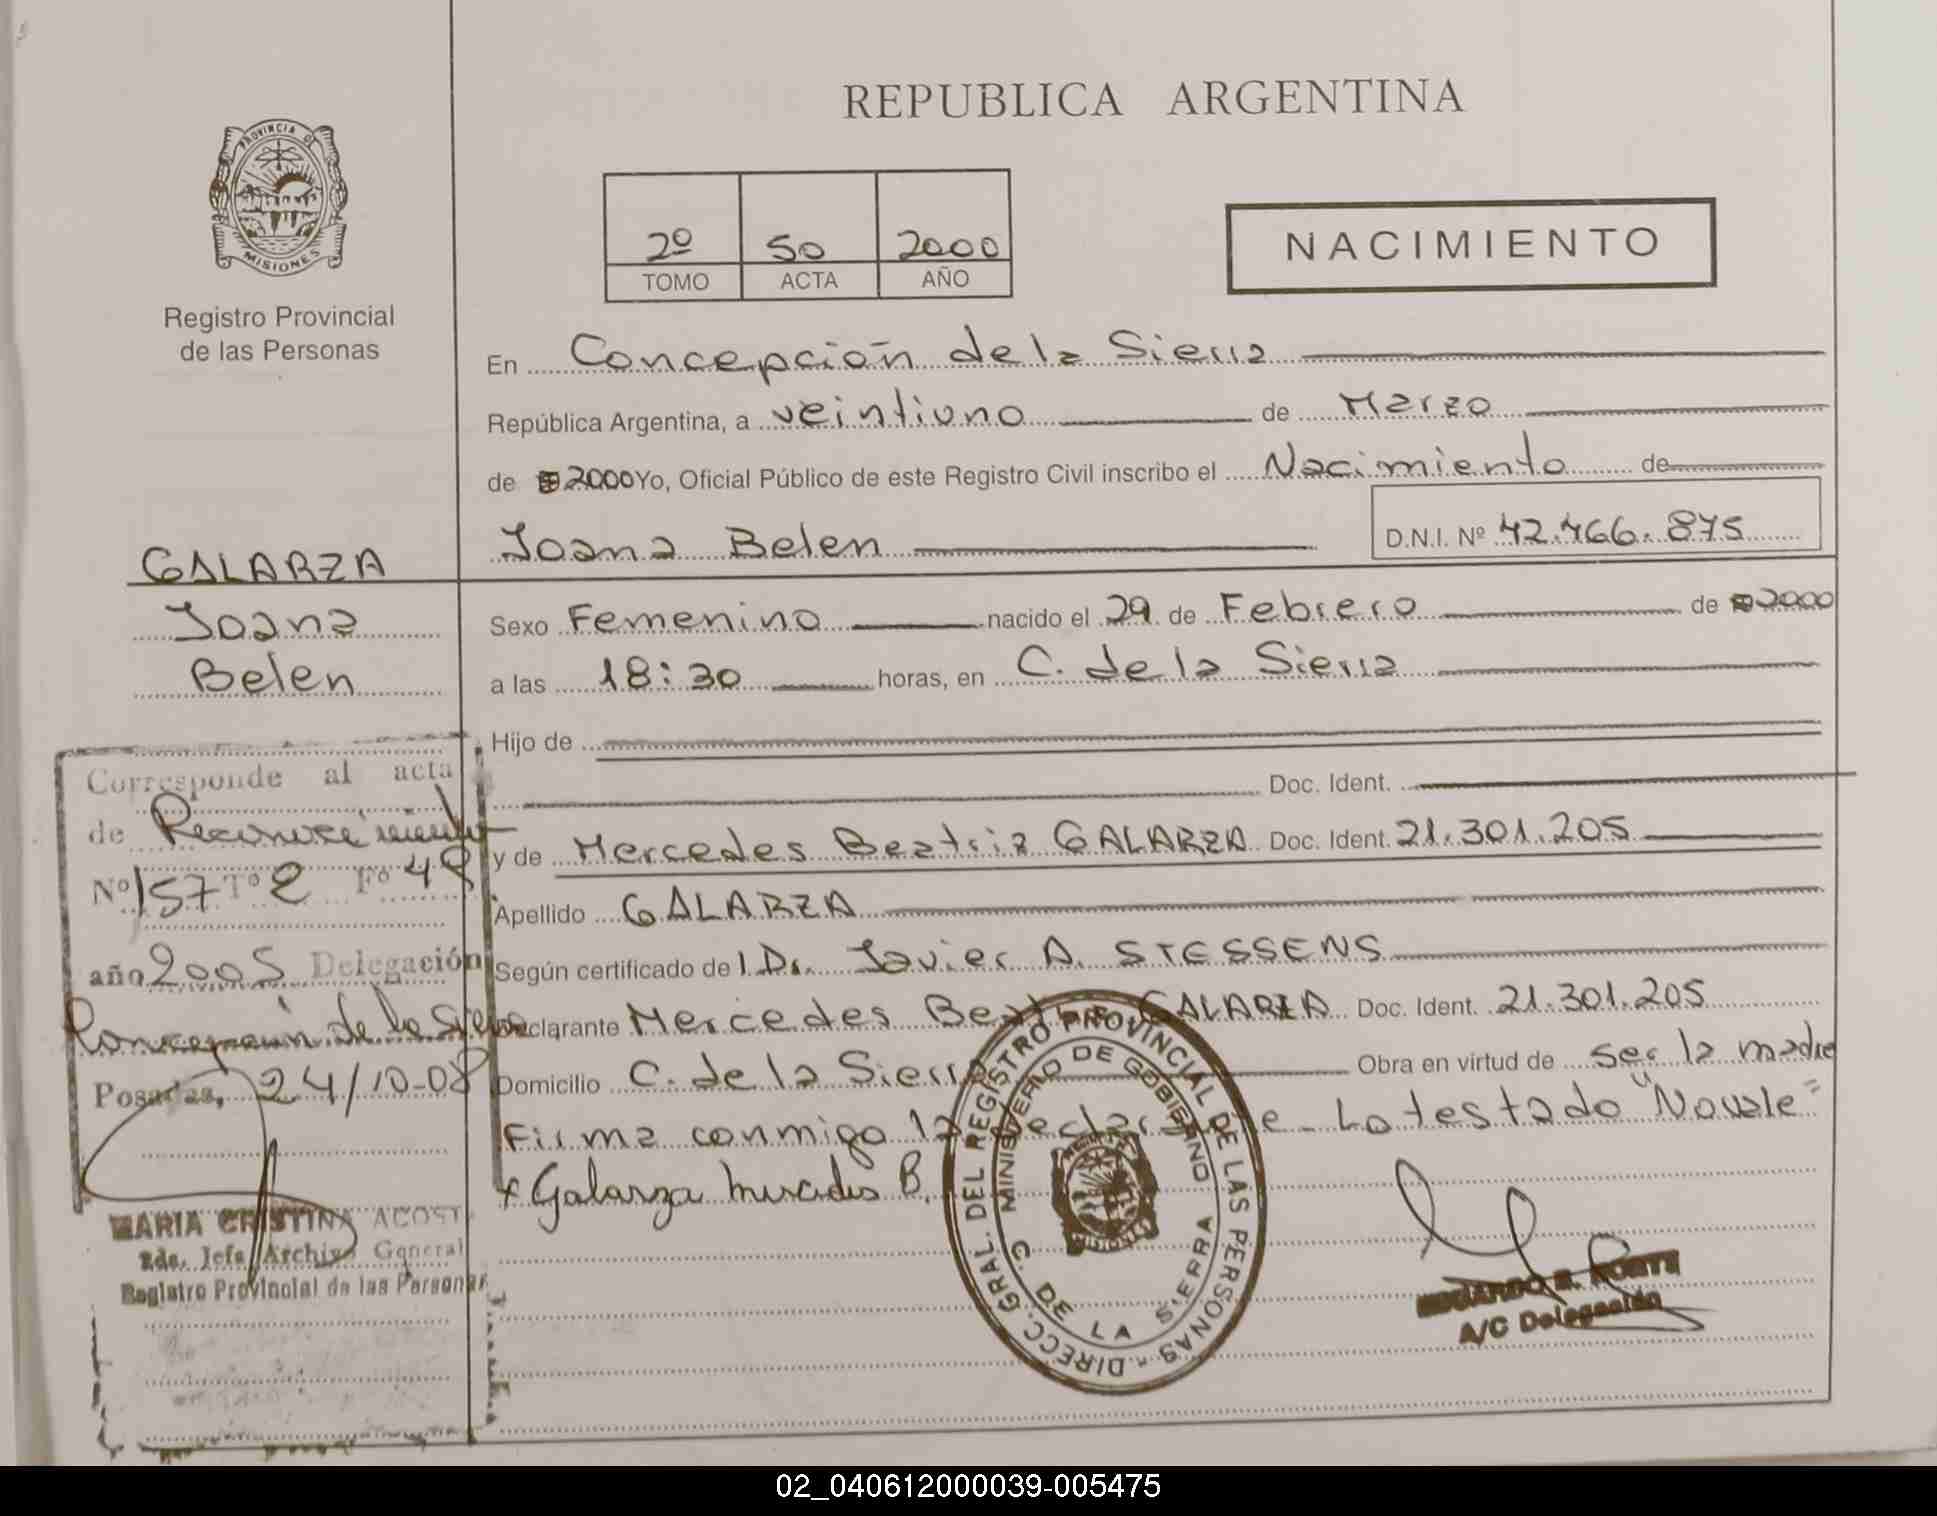 REPUBLICA ARGENTINA
PROVINCIA DE
MISIONES
Registro Provincial
de las Personas
2º 50 2000
TOMO ACTA AÑO
NACIMIENTO
En Concepción de la Sierra
República Argentina, a veintiuno de Marzo
de 2000 Yo, Oficial Público de este Registro Civil inscribo el Nacimiento de
Joana Belen D.N.I. Nº 42.466.875
GALARZA
Joana
Belen
Sexo Femenino nacido el 29 de Febrero de 2000
a las 18:30 horas, en C. de la Sierra
Hijo de
Doc. Ident.
y de Mercedes Beatriz GALARZA Doc. Ident. 21.301.205
Apellido GALARZA
Según certificado de l Dr. Javier A. STESSENS
Declarante Mercedes Beatriz GALARZA Doc. Ident. 21.301.205
Domicilio C. de la Sierra Obra en virtud de ser la madre
Firma conmigo la declarante - Lo testado "Novale"
x Galarza Mercedes B.
Corresponde al acta
de Reconocimiento
Nº 157 Tº 2 Fº 48
año 2005 Delegación
Concepción de la Sierra
Posadas, 24/10-08
MARIA CRISTINA ACOSTA
Jefa Archivo General
Registro Provincial de las Personas
DIRECC. GRAL. DEL REGISTRO PROVINCIAL DE LAS PERSONAS
MINISTERIO DE GOBIERNO
C. DE LA SIERRA
MISIONES
A/C Delegación
02_040612000039-005475